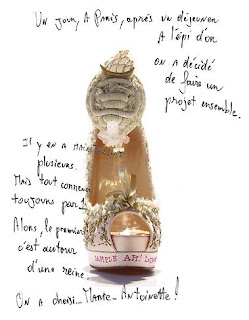 Un jour, à Paris, après un déjeuner
à l'épi d'or
on a décidé
de faire un
projet ensemble.
Il y en a maintenant
plusieurs.
Mais tout commence
toujours par 1.
Alors, le premier
c'est autour
d'une reine.
On a choisi... Marie-Antoinette!
AH!